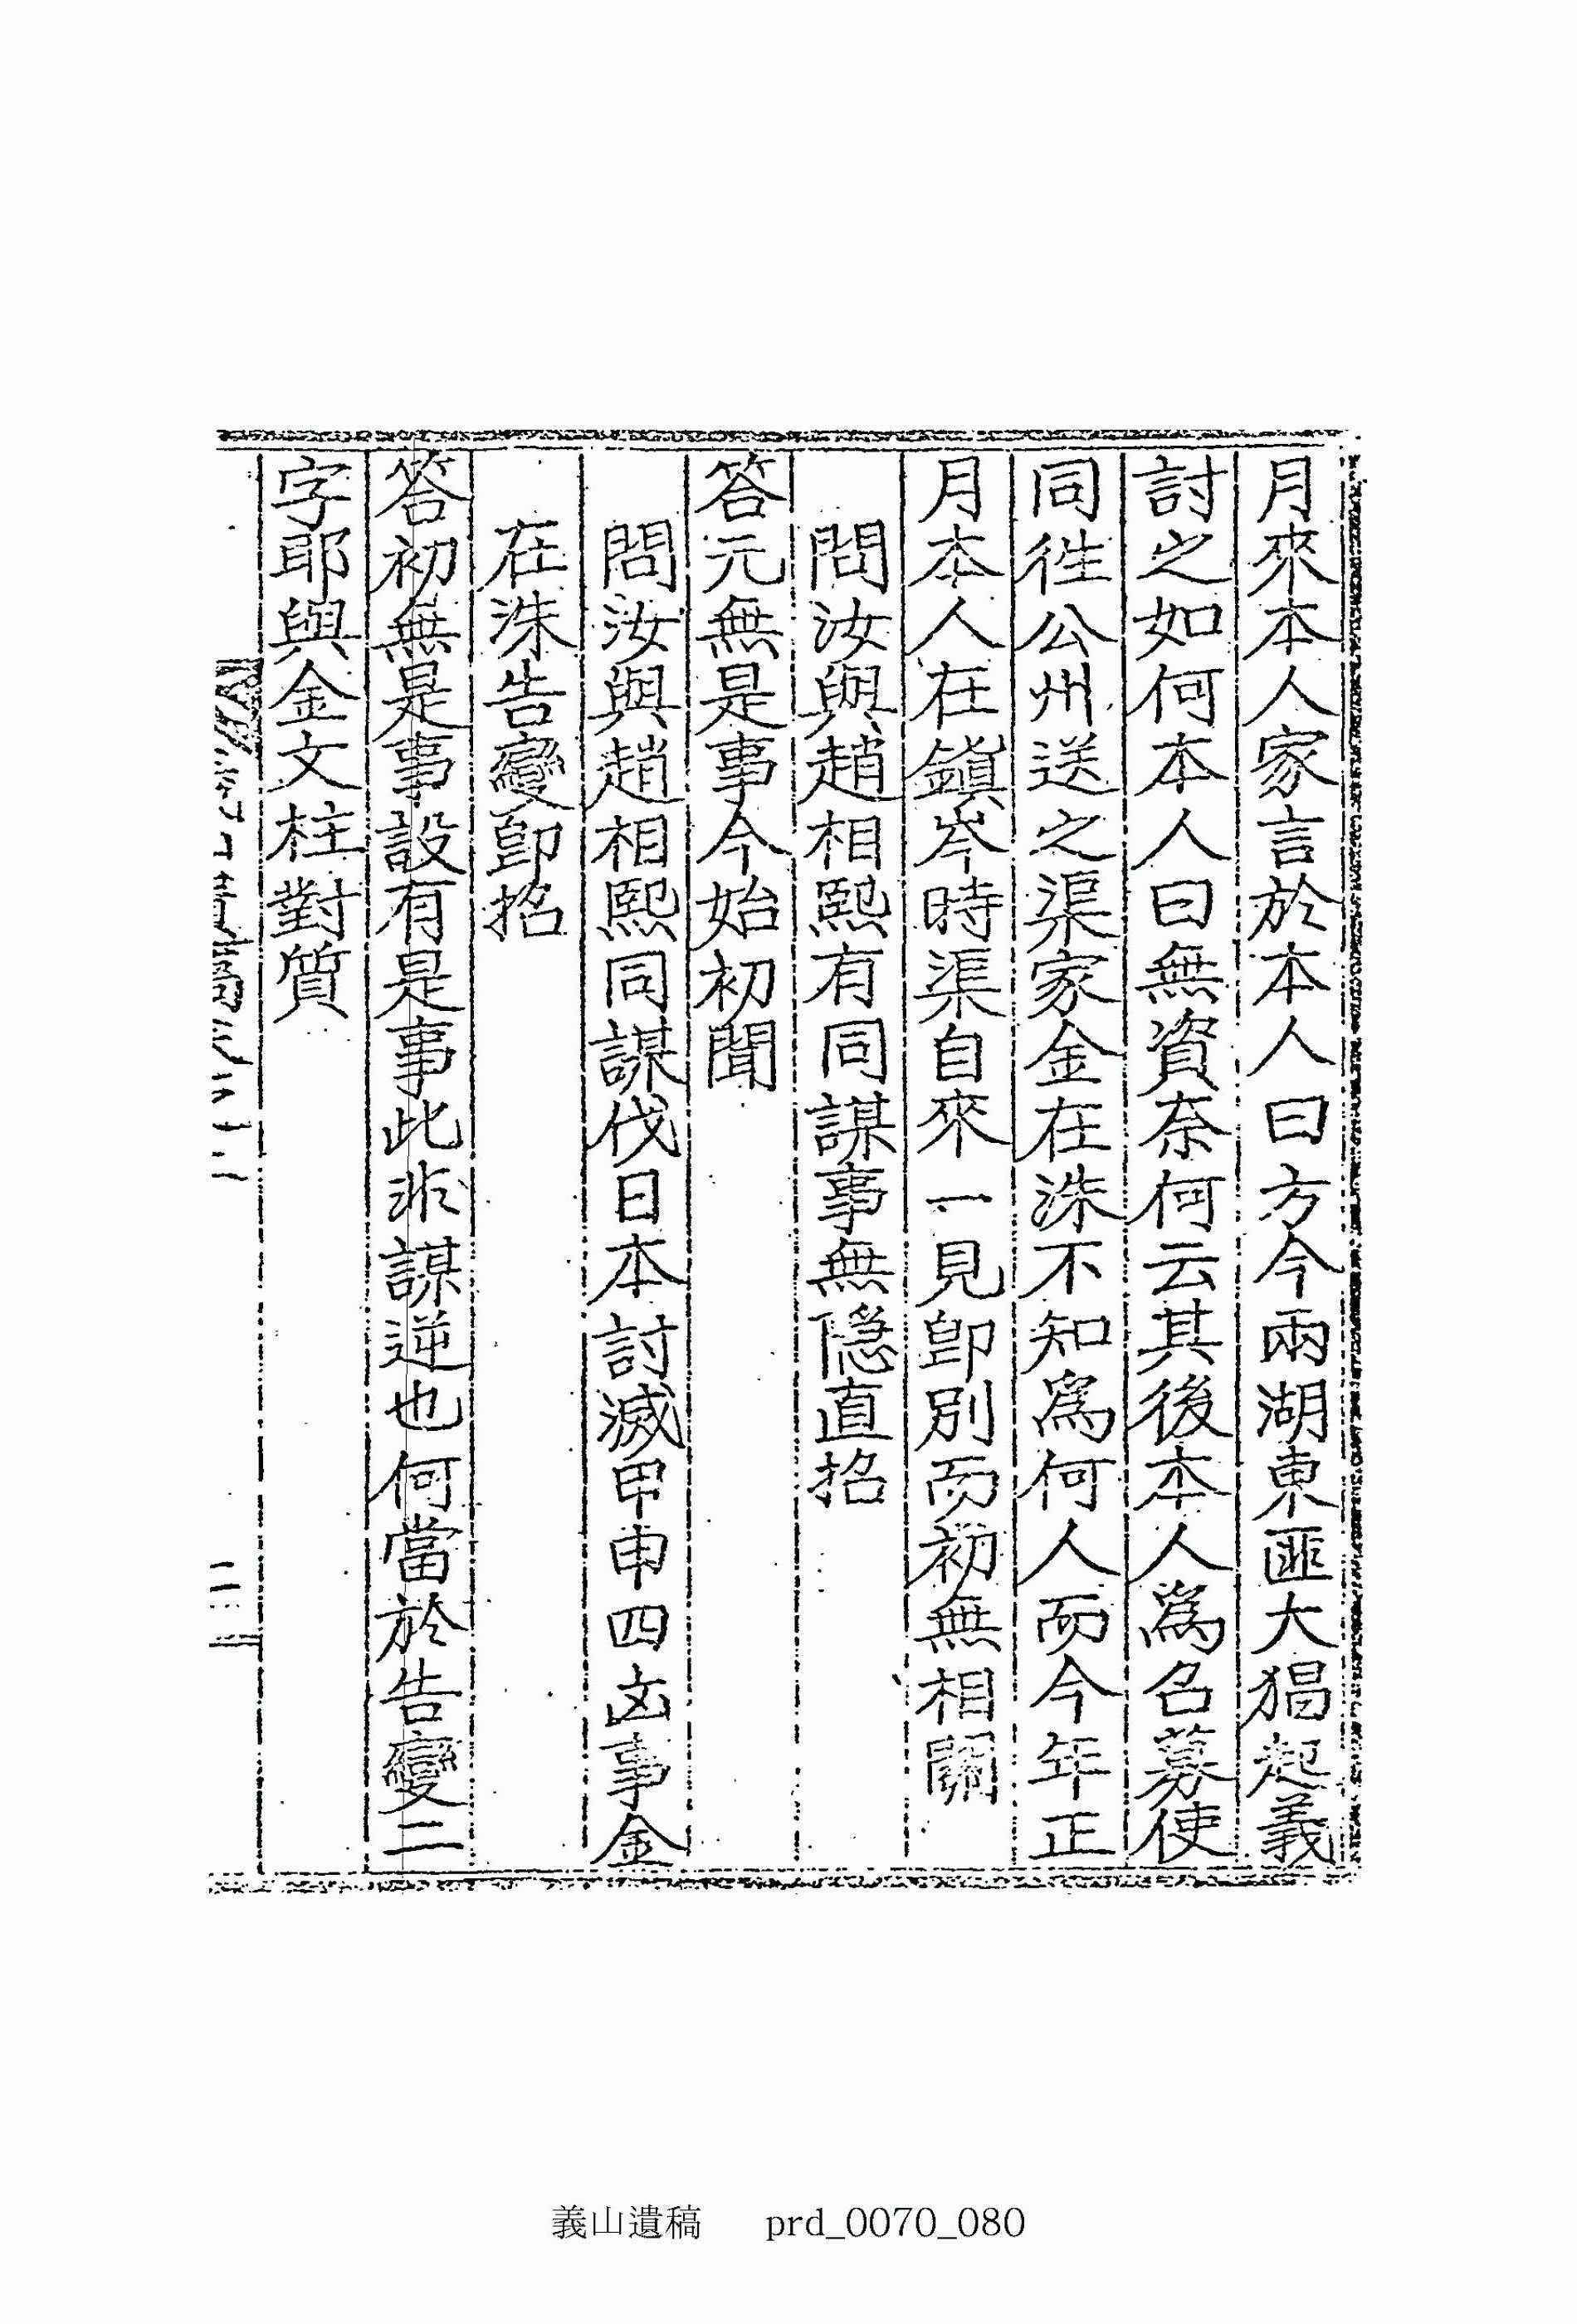 月來本人家言於本人曰方今兩湖東匪大猖起義
討之如何本人曰無資奈何云其後本人爲名募使
同徃公州送之渠家金在洙不知爲何人而今年正
月本人在鎭岑時渠自來一見卽別而初無相關
問汝與趙相熙有同謀事無隱直招
答元無是事今始初聞
問汝與趙相熙同謀伐日本討滅甲申四凶事金
在洙告變卽招
答初無是事設有是事此非謀逆也何當於告變二
字耶與金文柱對質
義山遺稿 prd_0070_080